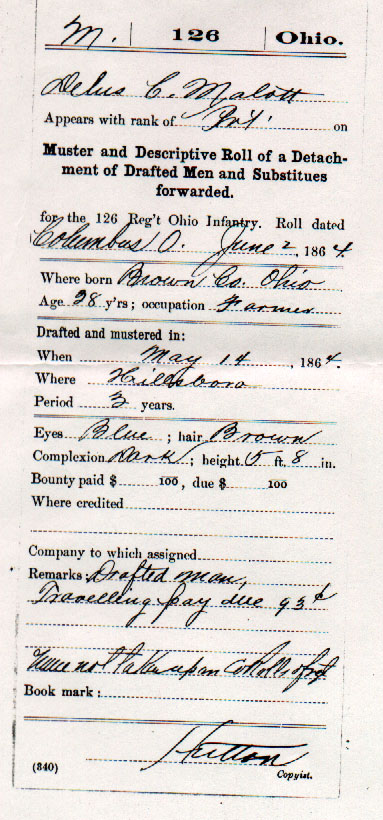 M. | 126 | Ohio.
Delus C. Malott
Appears with rank of Pvt on
Muster and Descriptive Roll of a Detach-
ment of Drafted Men and Substitues
forwarded.
for the 126 Reg't Ohio Infantry. Roll dated
Columbus O. June 2, 1864.
Where born Brown Co. Ohio
Age 28 y'rs; occupation Farmer
Drafted and mustered in:
When May 14, 1864.
Where Hillsboro
Period 3 years.
Eyes Blue; hair Brown
Complexion Dark; height 5 ft. 8 in.
Bounty paid $ 100, due $ 100
Where credited
Company to which assigned
Remarks: Drafted man,
Travelling pay due 93¢
Name not taken up on Rolls of
Book mark:
(340)
Copyist.